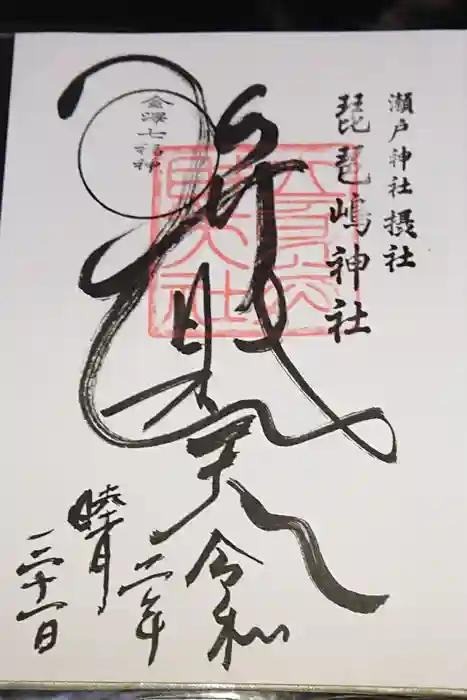 瀬戸神社 摂社
琵琶嶋神社
弁財天
金澤七福神
令和
二年
睦月
三十一日